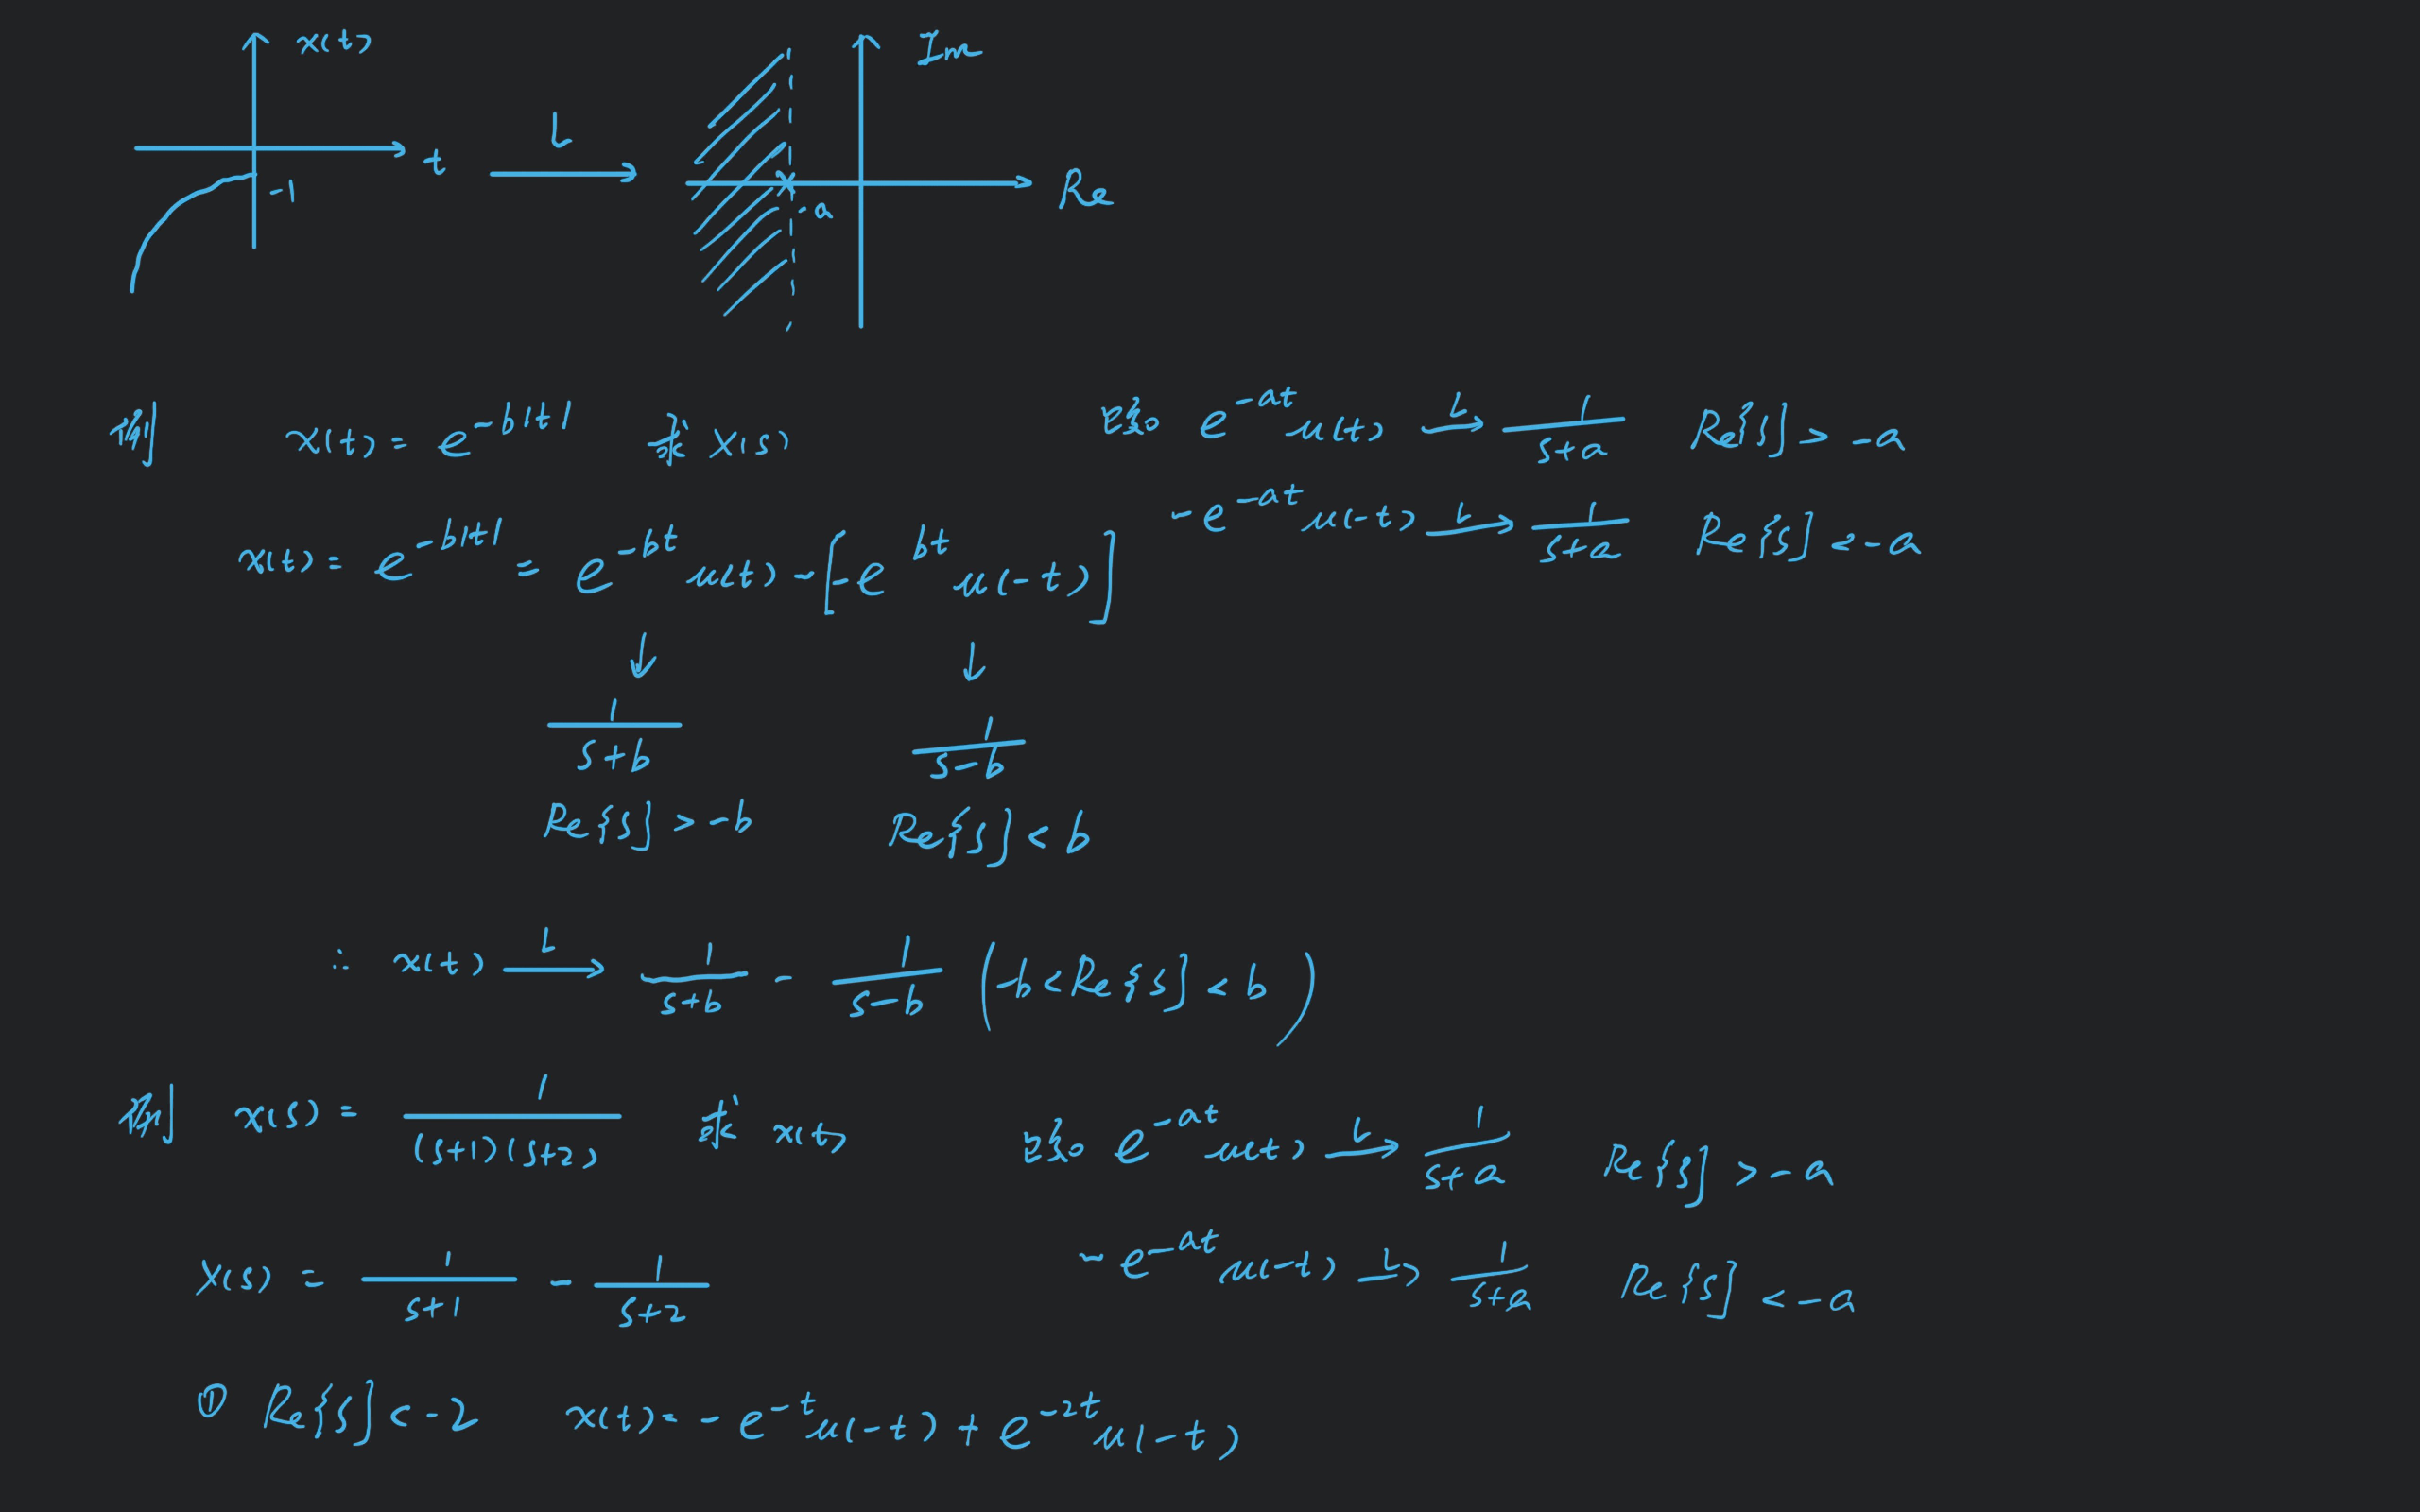 x(t)
t
-1
L
Im
Re
-a
例 x(t) = e^{-b|t|} 求 X(s)
已知 e^{-at}u(t) \xrightarrow{L} \frac{1}{s+a} Re{s} > -a
-e^{-at}u(-t) \xrightarrow{L} \frac{1}{s+a} Re{s} < -a
x(t) = e^{-b|t|} = e^{-bt}u(t) - [-e^{bt}u(-t)]
↓ ↓
\frac{1}{s+b} \frac{1}{s-b}
Re{s} > -b Re{s} < b
∴ x(t) \xrightarrow{L} \frac{1}{s+b} - \frac{1}{s-b} (-b < Re{s} < b)
例 X(s) = \frac{1}{(s+1)(s+2)} 求 x(t)
已知 e^{-at}u(t) \xrightarrow{L} \frac{1}{s+a} Re{s} > -a
-e^{-at}u(-t) \xrightarrow{L} \frac{1}{s+a} Re{s} < -a
X(s) = \frac{1}{s+1} - \frac{1}{s+2}
① Re{s} < -2 x(t) = -e^{-t}u(-t) + e^{-2t}u(-t)